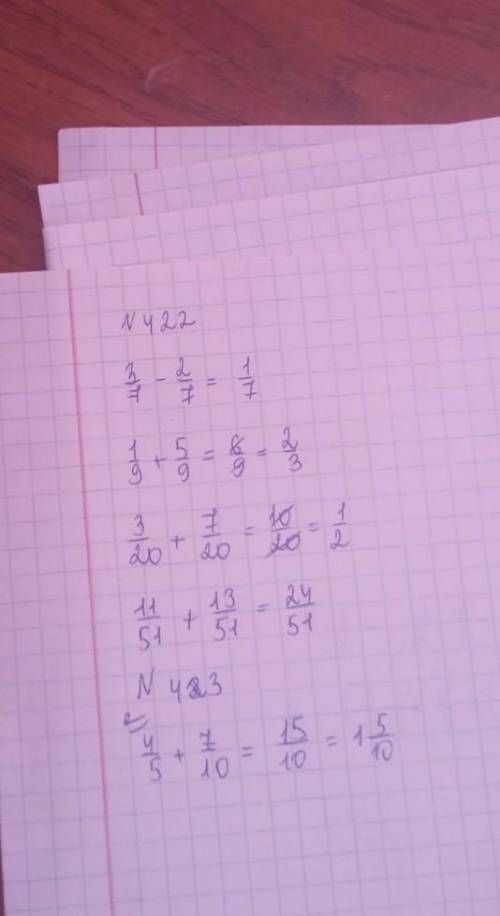 N 422
3/7 - 2/7 = 1/7
1/9 + 5/9 = 6/9 = 2/3
3/20 + 7/20 = 10/20 = 1/2
11/51 + 13/51 = 24/51
N 423
4/5 + 7/10 = 15/10 = 1 5/10